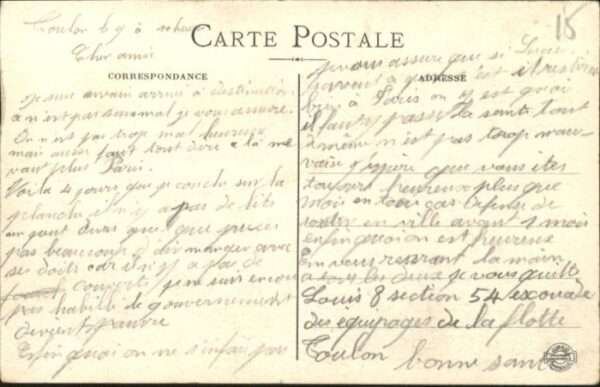 15
Toulon
Cher amie
CARTE POSTALE
CORRESPONDANCE
ADRESSE
Je suis arrivé a destination
n'est pas mal je vous assure.
On n'est pas trop mal heureux
mais aussi faut tout dire a la
vaut plus Paris.
Voila 4 jours que je couche sur la
planche il n'y a pas de lits
un peut durs que que puces
pas beaucoup a dir manger avec
ses doits car il n'y a pas de
couverts je ne suis encore
pas habillé de gouvernement
devent pauvre
Enfin quoi on ne s'enfait pas
je vous assure que si
il
a Paris on y est quoi
il faut y passer la santé tout
même n'est pas trop mau
vaise j'espere que vous êtes
toujours heureux plus que
mois en tous cas defense de
sortir en ville avant 1 mois
enfin quoi on est heureux
En vous serrant la main
a tous les deux je vous quitte
Louis 8 section 54 escouade
des équipages de la flotte
Toulon bonne santé